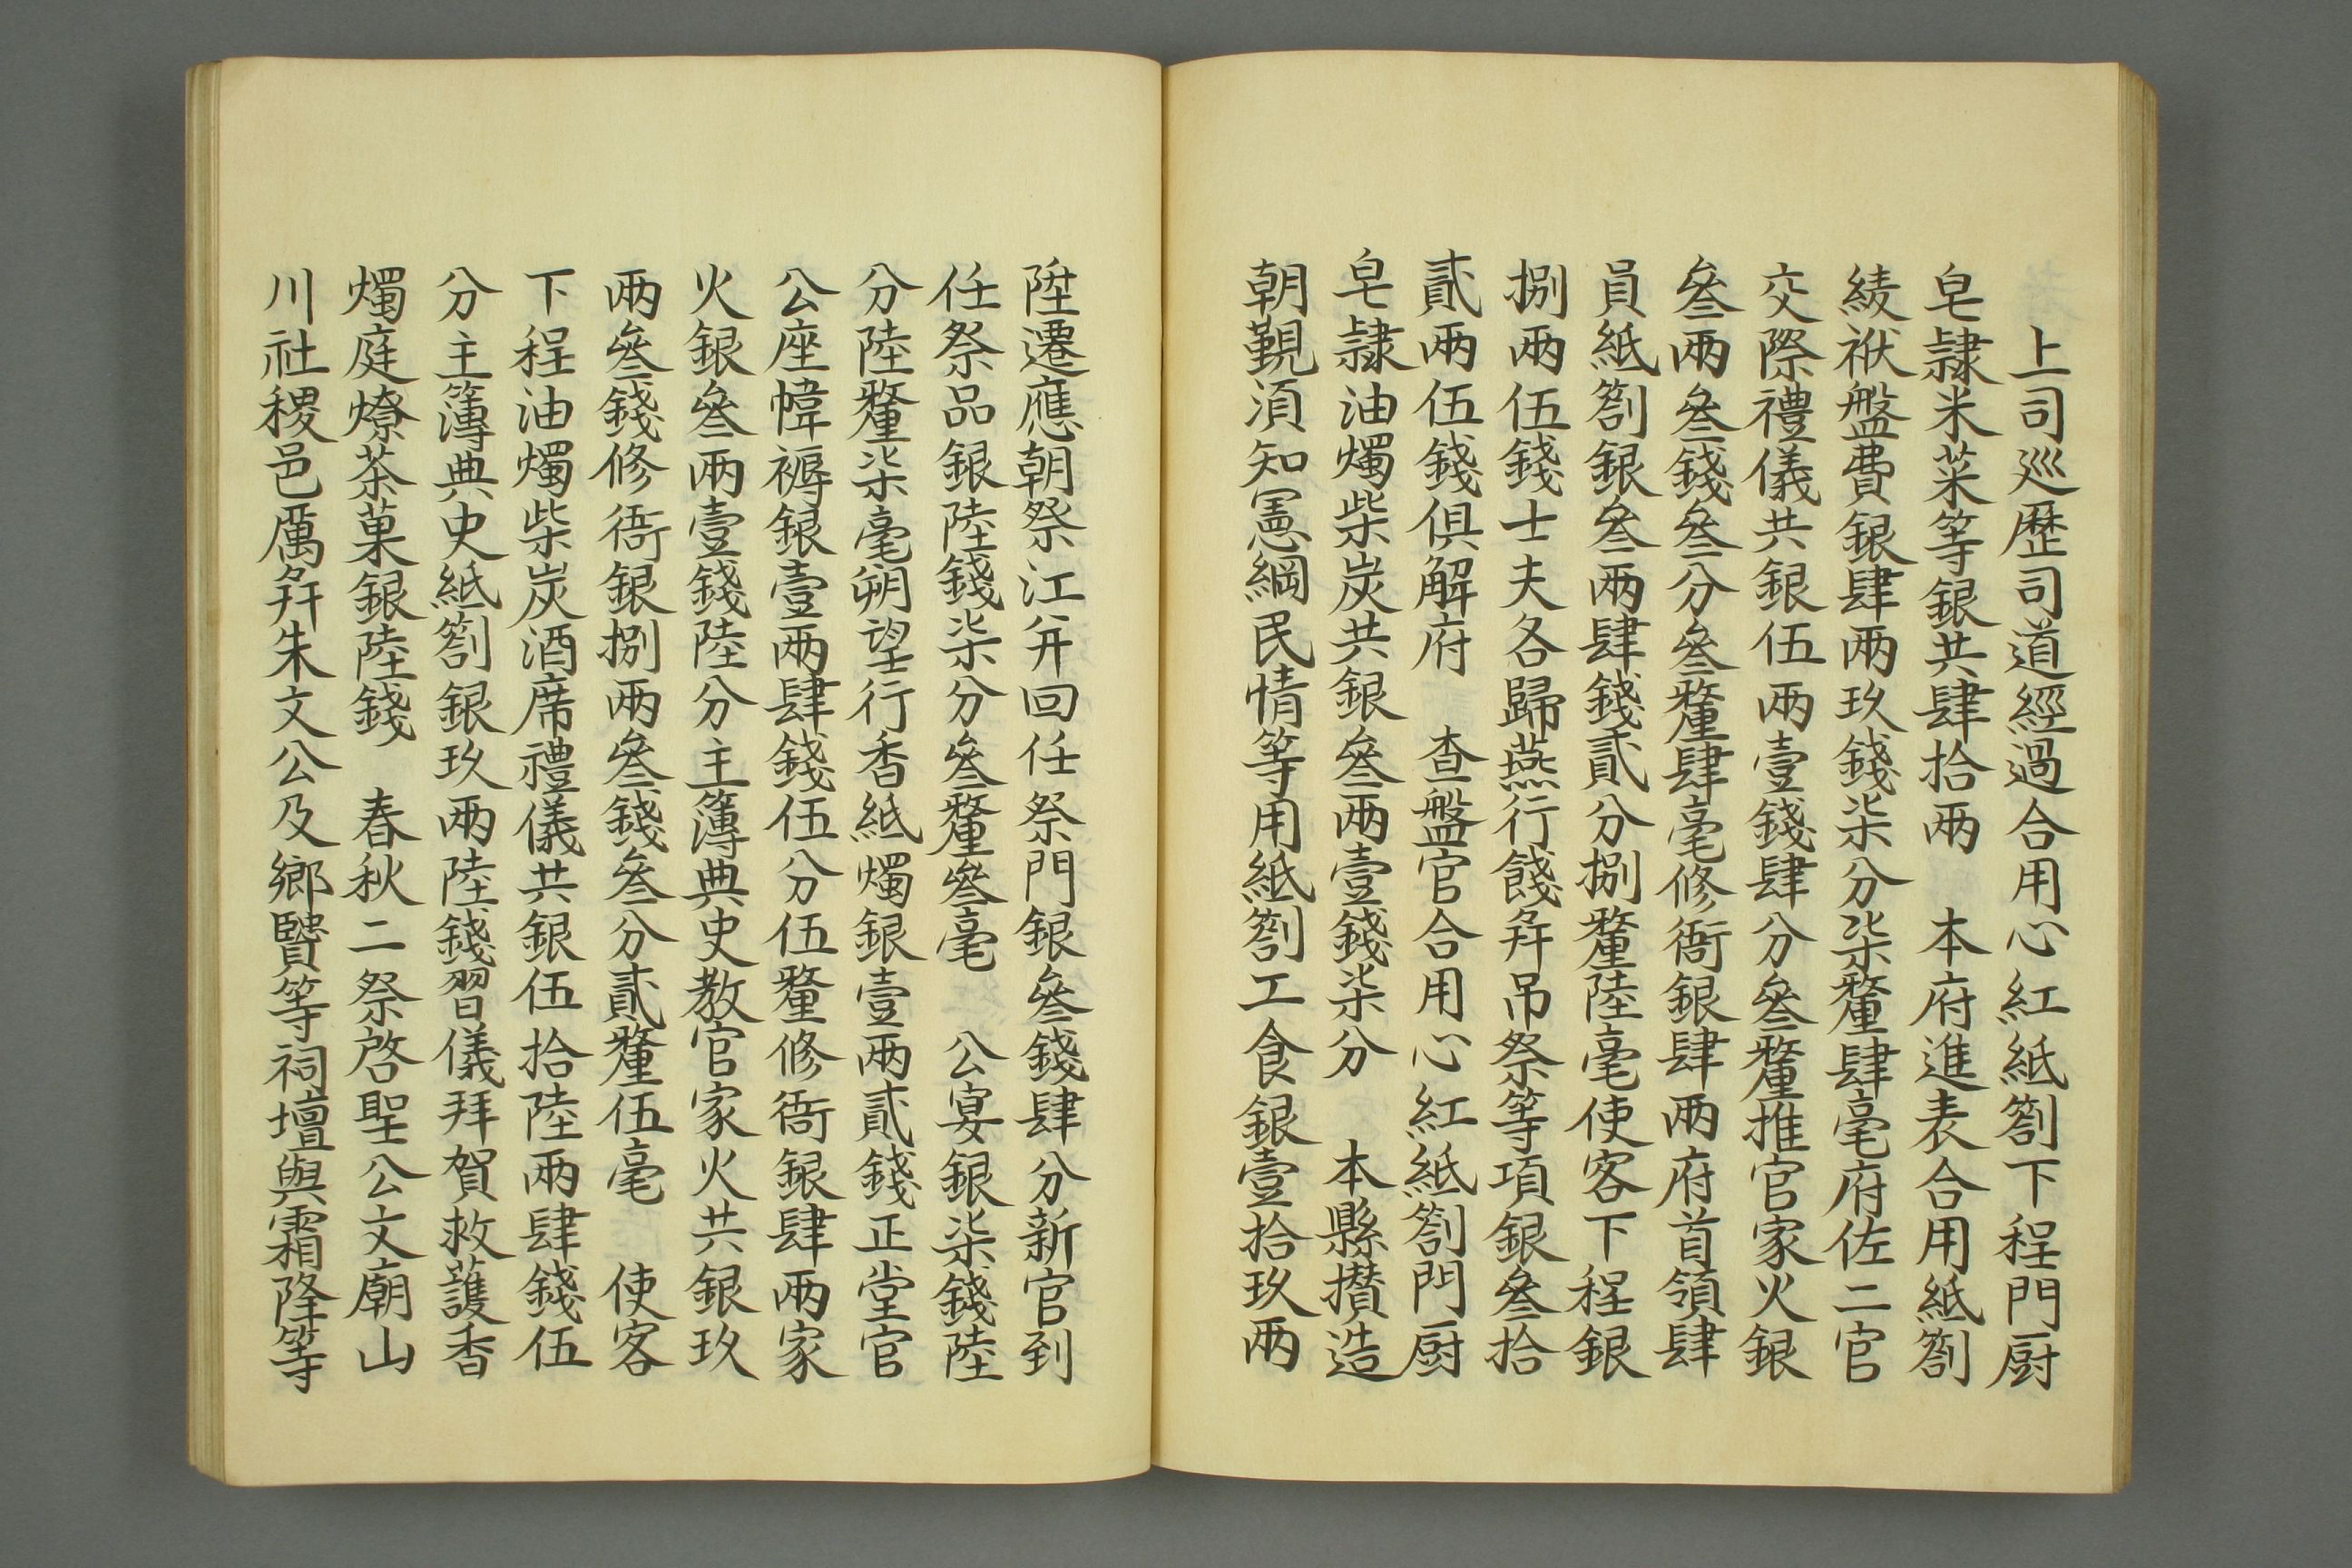 上司巡歷司道經過合用心紅紙劄下程門厨
皂隷米菜等銀共肆拾兩　本府進表合用紙劄
綾袱盤費銀肆兩玖錢柒分柒釐肆毫府佐二官
交際禮儀共銀伍兩壹錢肆分叄釐推官家火銀
叄兩叄錢叄分叄釐肆毫修衙銀肆兩府首領肆
員紙劄銀叄兩肆錢貳分捌釐陸毫使客下程銀
捌兩伍錢士夫各歸燕行餞并吊祭等項銀叄拾
貳兩伍錢俱解府　查盤官合用心紅紙劄門厨
皂隷油燭柴炭共銀叄兩壹錢柒分　本縣攅造
朝覲湏知憲綱民情等用紙劄工食銀壹拾玖兩
陞遷應朝祭江并回任祭門銀叄錢肆分新官到
任祭品銀陸錢柒分叄釐叄毫　公宴銀柒錢陸
分陸釐柒毫朔望行香紙燭銀壹兩貳錢正堂官
公座幃褥銀壹兩肆錢伍分伍釐修衙銀肆兩家
火銀叄兩壹錢陸分主簿典史教官家火共銀玖
兩叄錢修衙銀捌兩叄錢叄分貳釐伍毫　使客
下程油燭柴炭酒席禮儀共銀伍拾陸兩肆錢伍
分主簿典史紙劄銀玖兩陸錢習儀拜賀救護香
燭庭燎茶菓銀陸錢　春秋二祭啓聖公文廟山
川社稷邑厲并朱文公及鄉賢等祠壇與霜降等